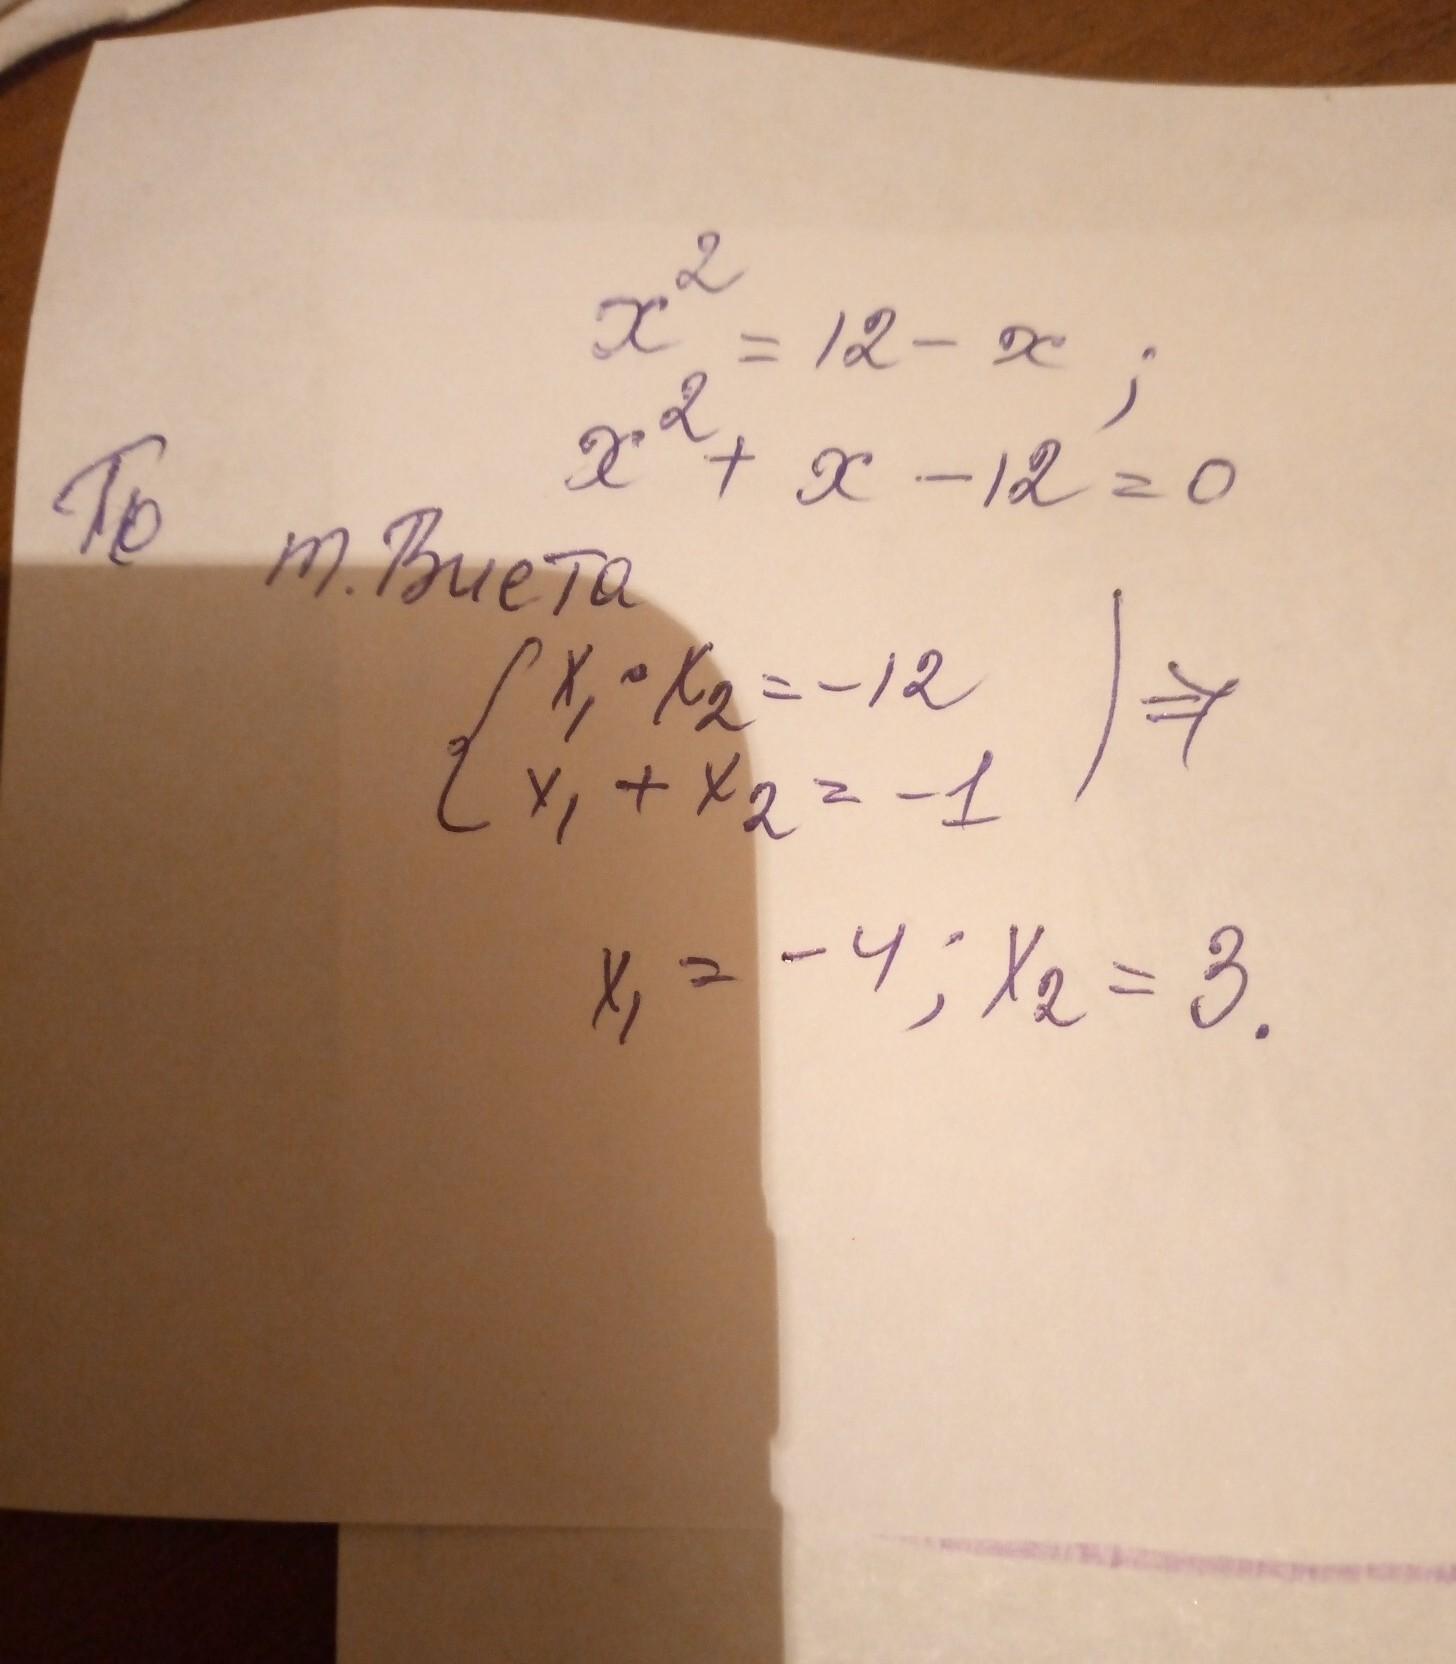 x² = 12 - x ;
x² + x - 12 = 0
По т. Виета
{ x₁ • x₂ = -12
x₁ + x₂ = -1 | ⇒
x₁ = -4 ; x₂ = 3.